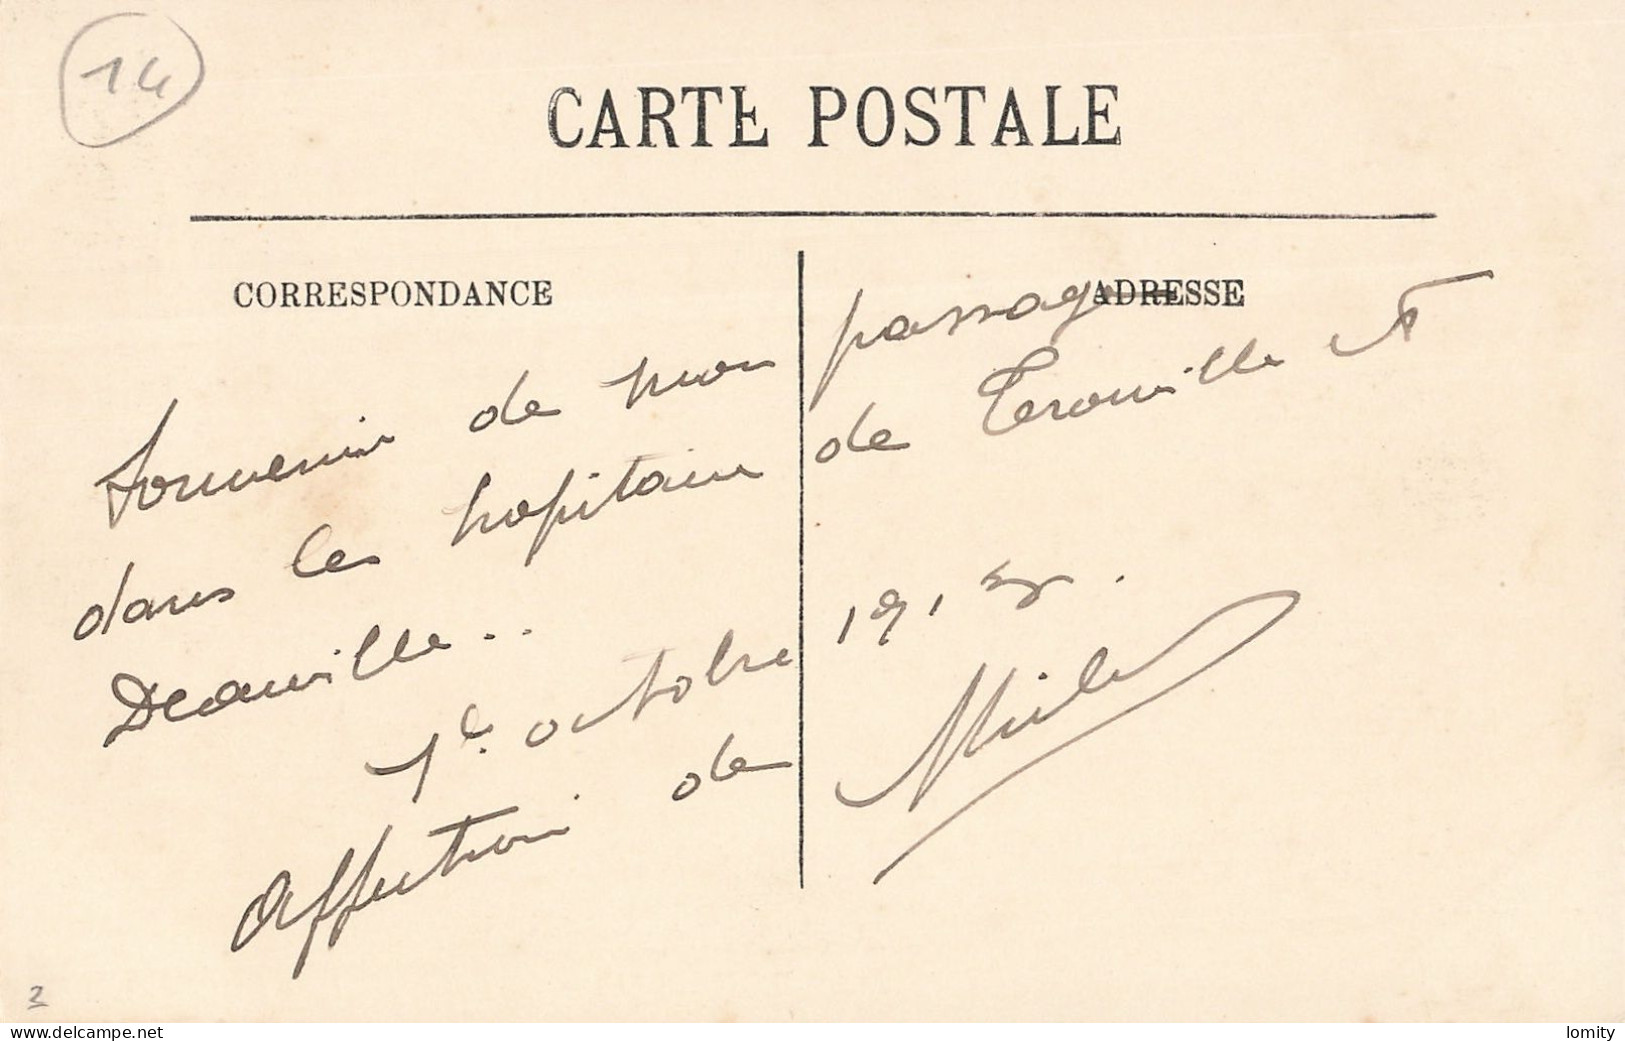 14
CARTE POSTALE
CORRESPONDANCE
ADRESSE
Souvenir de mon passage
dans les hopitaux de Trouville et
Deauville..
1e octobre 1915.
Affection de
2
www.delcampe.net
lomity